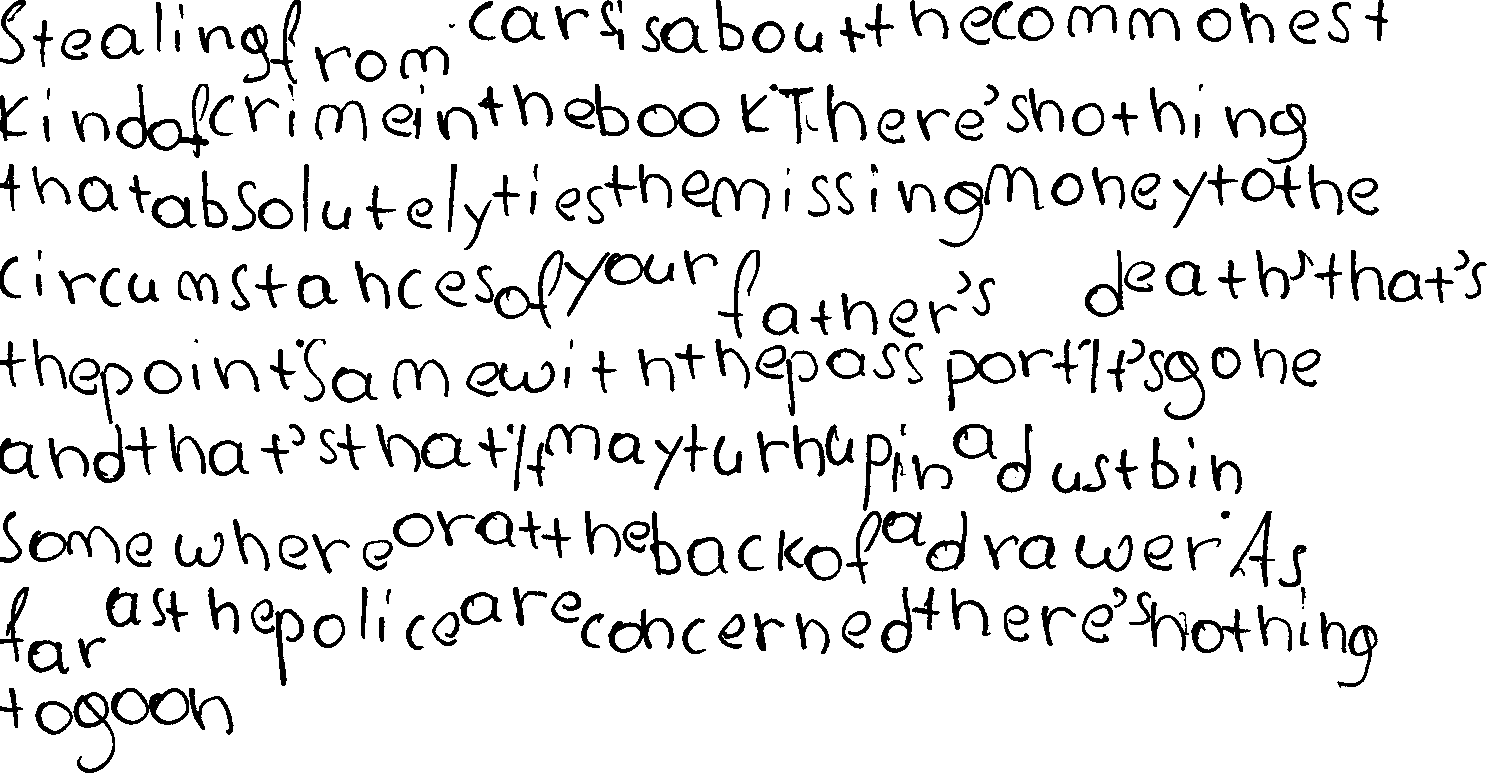 Stealing from cars is about the commonest
kind of crime in the book. There's nothing
that absolutely ties the missing money to the
circumstances of your father's death, that's
the point. Same with the passport. It's gone
and that's that. It may turn up in a dustbin
somewhere or at the back of a drawer. As
far as the police are concerned there's nothing
to go on